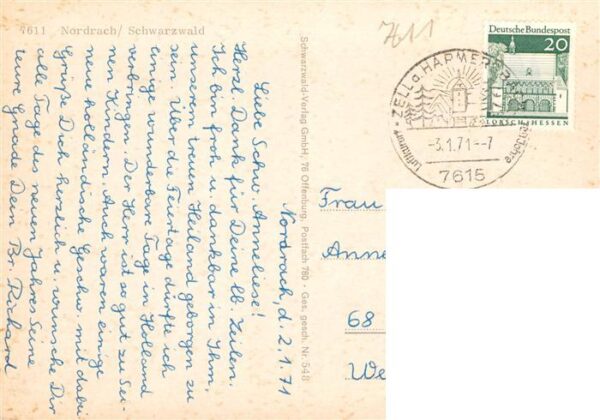 7611 Nordrach/Schwarzwald
7611
Deutsche Bundespost
20
LORSCH/HESSEN
ZELL a. HARMERSB
Luftkurort
-3.1.71--7
7615
Nordrach, d. 2.1.71
Liebe Schw. Anneliese!
Herzl. Dank für Deine lb. Zeilen.
Ich bin froh u. dankbar in Ihm,
unserem treuen Heiland geborgen zu
sein. Über die Feiertage durfte ich
einige wunderbare Tage in Holland
verbringen. Der Herr ist so gut zu Sei-
nen Kindern. Auch waren einige
neue holländische Geschw. mit dabei
Grüße Dich herzlich u. wünsche Dir
alle Tage des neuen Jahres Seine
teure Gnade Dein Br. Richard
Schwarzwald-Verlag GmbH, 76 Offenburg, Postfach 780 - Ges. gesch. Nr. 548
Frau
Anne
68
We